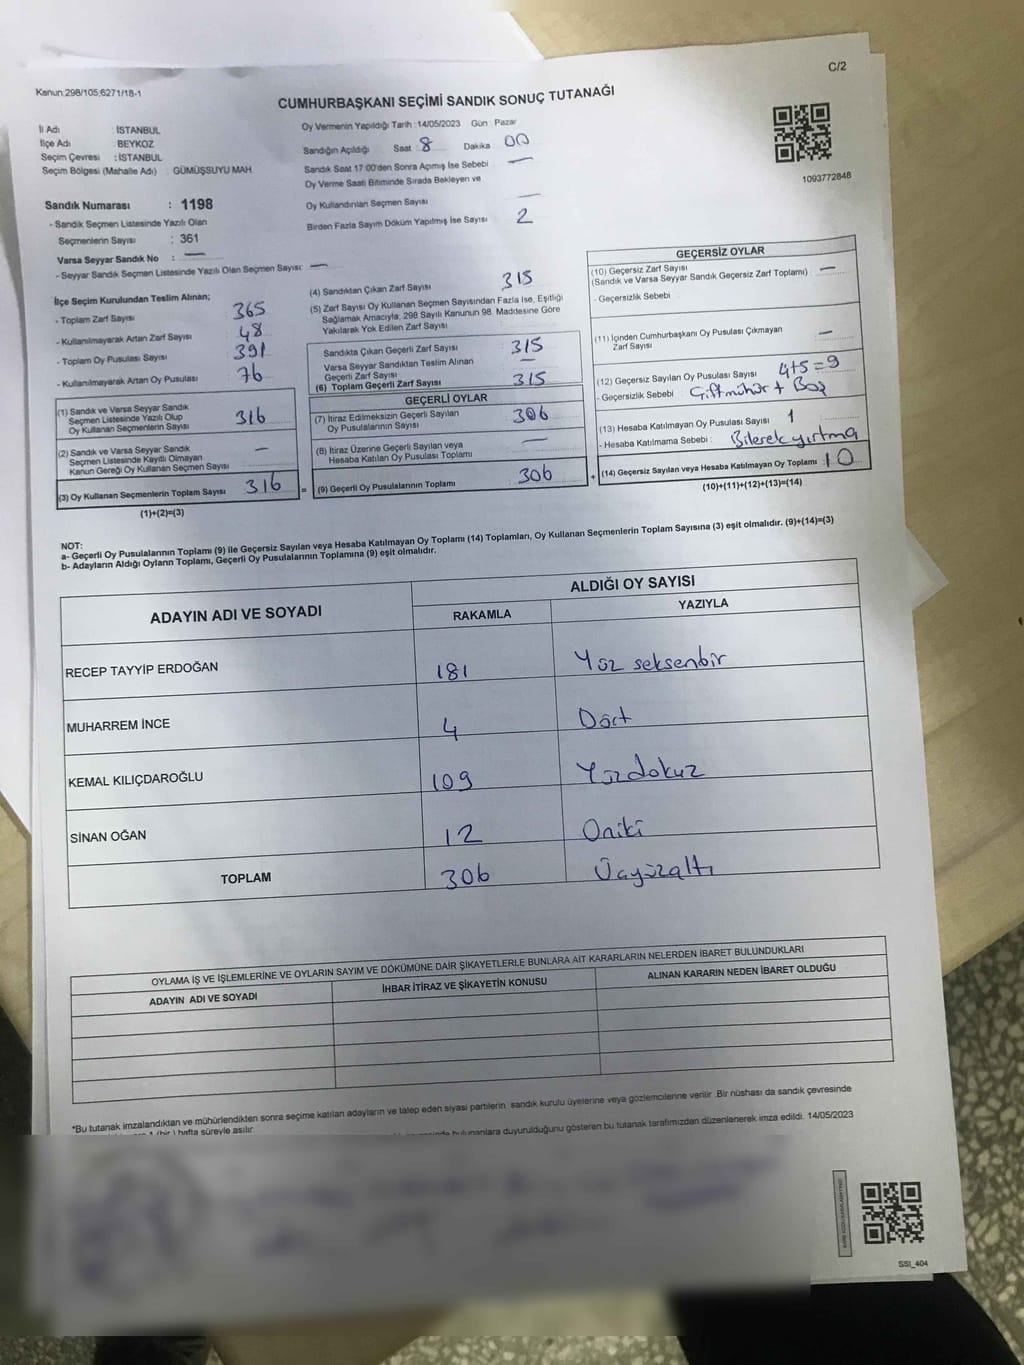 Kanun:298/105,6271/18-1
C/2
CUMHURBAŞKANI SEÇİMİ SANDIK SONUÇ TUTANAĞI
İl Adı : İSTANBUL
İlçe Adı : BEYKOZ
Seçim Çevresi : İSTANBUL
Seçim Bölgesi (Mahalle Adı) : GÜMÜŞSUYU MAH.
Sandık Numarası : 1198
- Sandık Seçmen Listesinde Yazılı Olan
Seçmenlerin Sayısı : 361
Varsa Seyyar Sandık No : —
- Seyyar Sandık Seçmen Listesinde Yazılı Olan Seçmen Sayısı: —
Oy Vermenin Yapıldığı Tarih : 14/05/2023 Gün : Pazar
Sandığın Açıldığı Saat 8 Dakika 00
Sandık Saat 17:00'den Sonra Açılmış İse Sebebi —
Oy Verme Saati Bitiminde Sırada Bekleyen ve
Oy Kullandırılan Seçmen Sayısı —
Birden Fazla Sayım Döküm Yapılmış İse Sayısı 2
1093772848
İlçe Seçim Kurulundan Teslim Alınan;
- Toplam Zarf Sayısı 365
- Kullanılmayarak Artan Zarf Sayısı 48
- Toplam Oy Pusulası Sayısı 391
- Kullanılmayarak Artan Oy Pusulası 76
(1) Sandık ve Varsa Seyyar Sandık
Seçmen Listesinde Yazılı Olup
Oy Kullanan Seçmenlerin Sayısı 316
(2) Sandık ve Varsa Seyyar Sandık
Seçmen Listesinde Kayıtlı Olmayan
Kanun Gereği Oy Kullanan Seçmen Sayısı —
(3) Oy Kullanan Seçmenlerin Toplam Sayısı 316 =
(1)+(2)=(3)
(4) Sandıktan Çıkan Zarf Sayısı 315
(5) Zarf Sayısı Oy Kullanan Seçmen Sayısından Fazla İse, Eşitliği
Sağlamak Amacıyla, 298 Sayılı Kanunun 98. Maddesine Göre
Yakılarak Yok Edilen Zarf Sayısı
Sandıkta Çıkan Geçerli Zarf Sayısı 315
Varsa Seyyar Sandıktan Teslim Alınan
Geçerli Zarf Sayısı —
(6) Toplam Geçerli Zarf Sayısı 315
GEÇERLİ OYLAR
(7) İtiraz Edilmeksizin Geçerli Sayılan
Oy Pusulalarının Sayısı 306
(8) İtiraz Üzerine Geçerli Sayılan veya
Hesaba Katılan Oy Pusulası Toplamı —
(9) Geçerli Oy Pusulalarının Toplamı 306 +
GEÇERSİZ OYLAR
(10) Geçersiz Zarf Sayısı —
(Sandık ve Varsa Seyyar Sandık Geçersiz Zarf Toplamı)
- Geçersizlik Sebebi
(11) İçinden Cumhurbaşkanı Oy Pusulası Çıkmayan
Zarf Sayısı —
(12) Geçersiz Sayılan Oy Pusulası Sayısı 4+5=9
- Geçersizlik Sebebi : Çift mühür + Boş
(13) Hesaba Katılmayan Oy Pusulası Sayısı 1
- Hesaba Katılmama Sebebi : Bilerek yırtma
(14) Geçersiz Sayılan veya Hesaba Katılmayan Oy Toplamı : 10
(10)+(11)+(12)+(13)=(14)
NOT:
a- Geçerli Oy Pusulalarının Toplamı (9) ile Geçersiz Sayılan veya Hesaba Katılmayan Oy Toplamı (14) Toplamları, Oy Kullanan Seçmenlerin Toplam Sayısına (3) eşit olmalıdır. (9)+(14)=(3)
b- Adayların Aldığı Oyların Toplamı, Geçerli Oy Pusulalarının Toplamına (9) eşit olmalıdır.
ADAYIN ADI VE SOYADI
ALDIĞI OY SAYISI
RAKAMLA YAZIYLA
RECEP TAYYİP ERDOĞAN 181 Yüz seksenbir
MUHARREM İNCE 4 Dört
KEMAL KILIÇDAROĞLU 109 Yüzdokuz
SİNAN OĞAN 12 Oniki
TOPLAM 306 Üçyüzaltı
OYLAMA İŞ VE İŞLEMLERİNE VE OYLARIN SAYIM VE DÖKÜMÜNE DAİR ŞİKAYETLERLE BUNLARA AİT KARARLARIN NELERDEN İBARET BULUNDUKLARI
ADAYIN ADI VE SOYADI İHBAR İTİRAZ VE ŞİKAYETİN KONUSU ALINAN KARARIN NEDEN İBARET OLDUĞU
*Bu tutanak imzalandıktan ve mühürlendikten sonra seçime katılan adayların ve talep eden siyasi partilerin sandık kurulu üyelerine veya gözlemcilerine verilir. Bir nüshası da sandık çevresinde
1 (bir) hafta süreyle asılır.
bulunanlara duyurulduğunu gösteren bu tutanak tarafımızdan düzenlenerek imza edildi. 14/05/2023
SSI_404